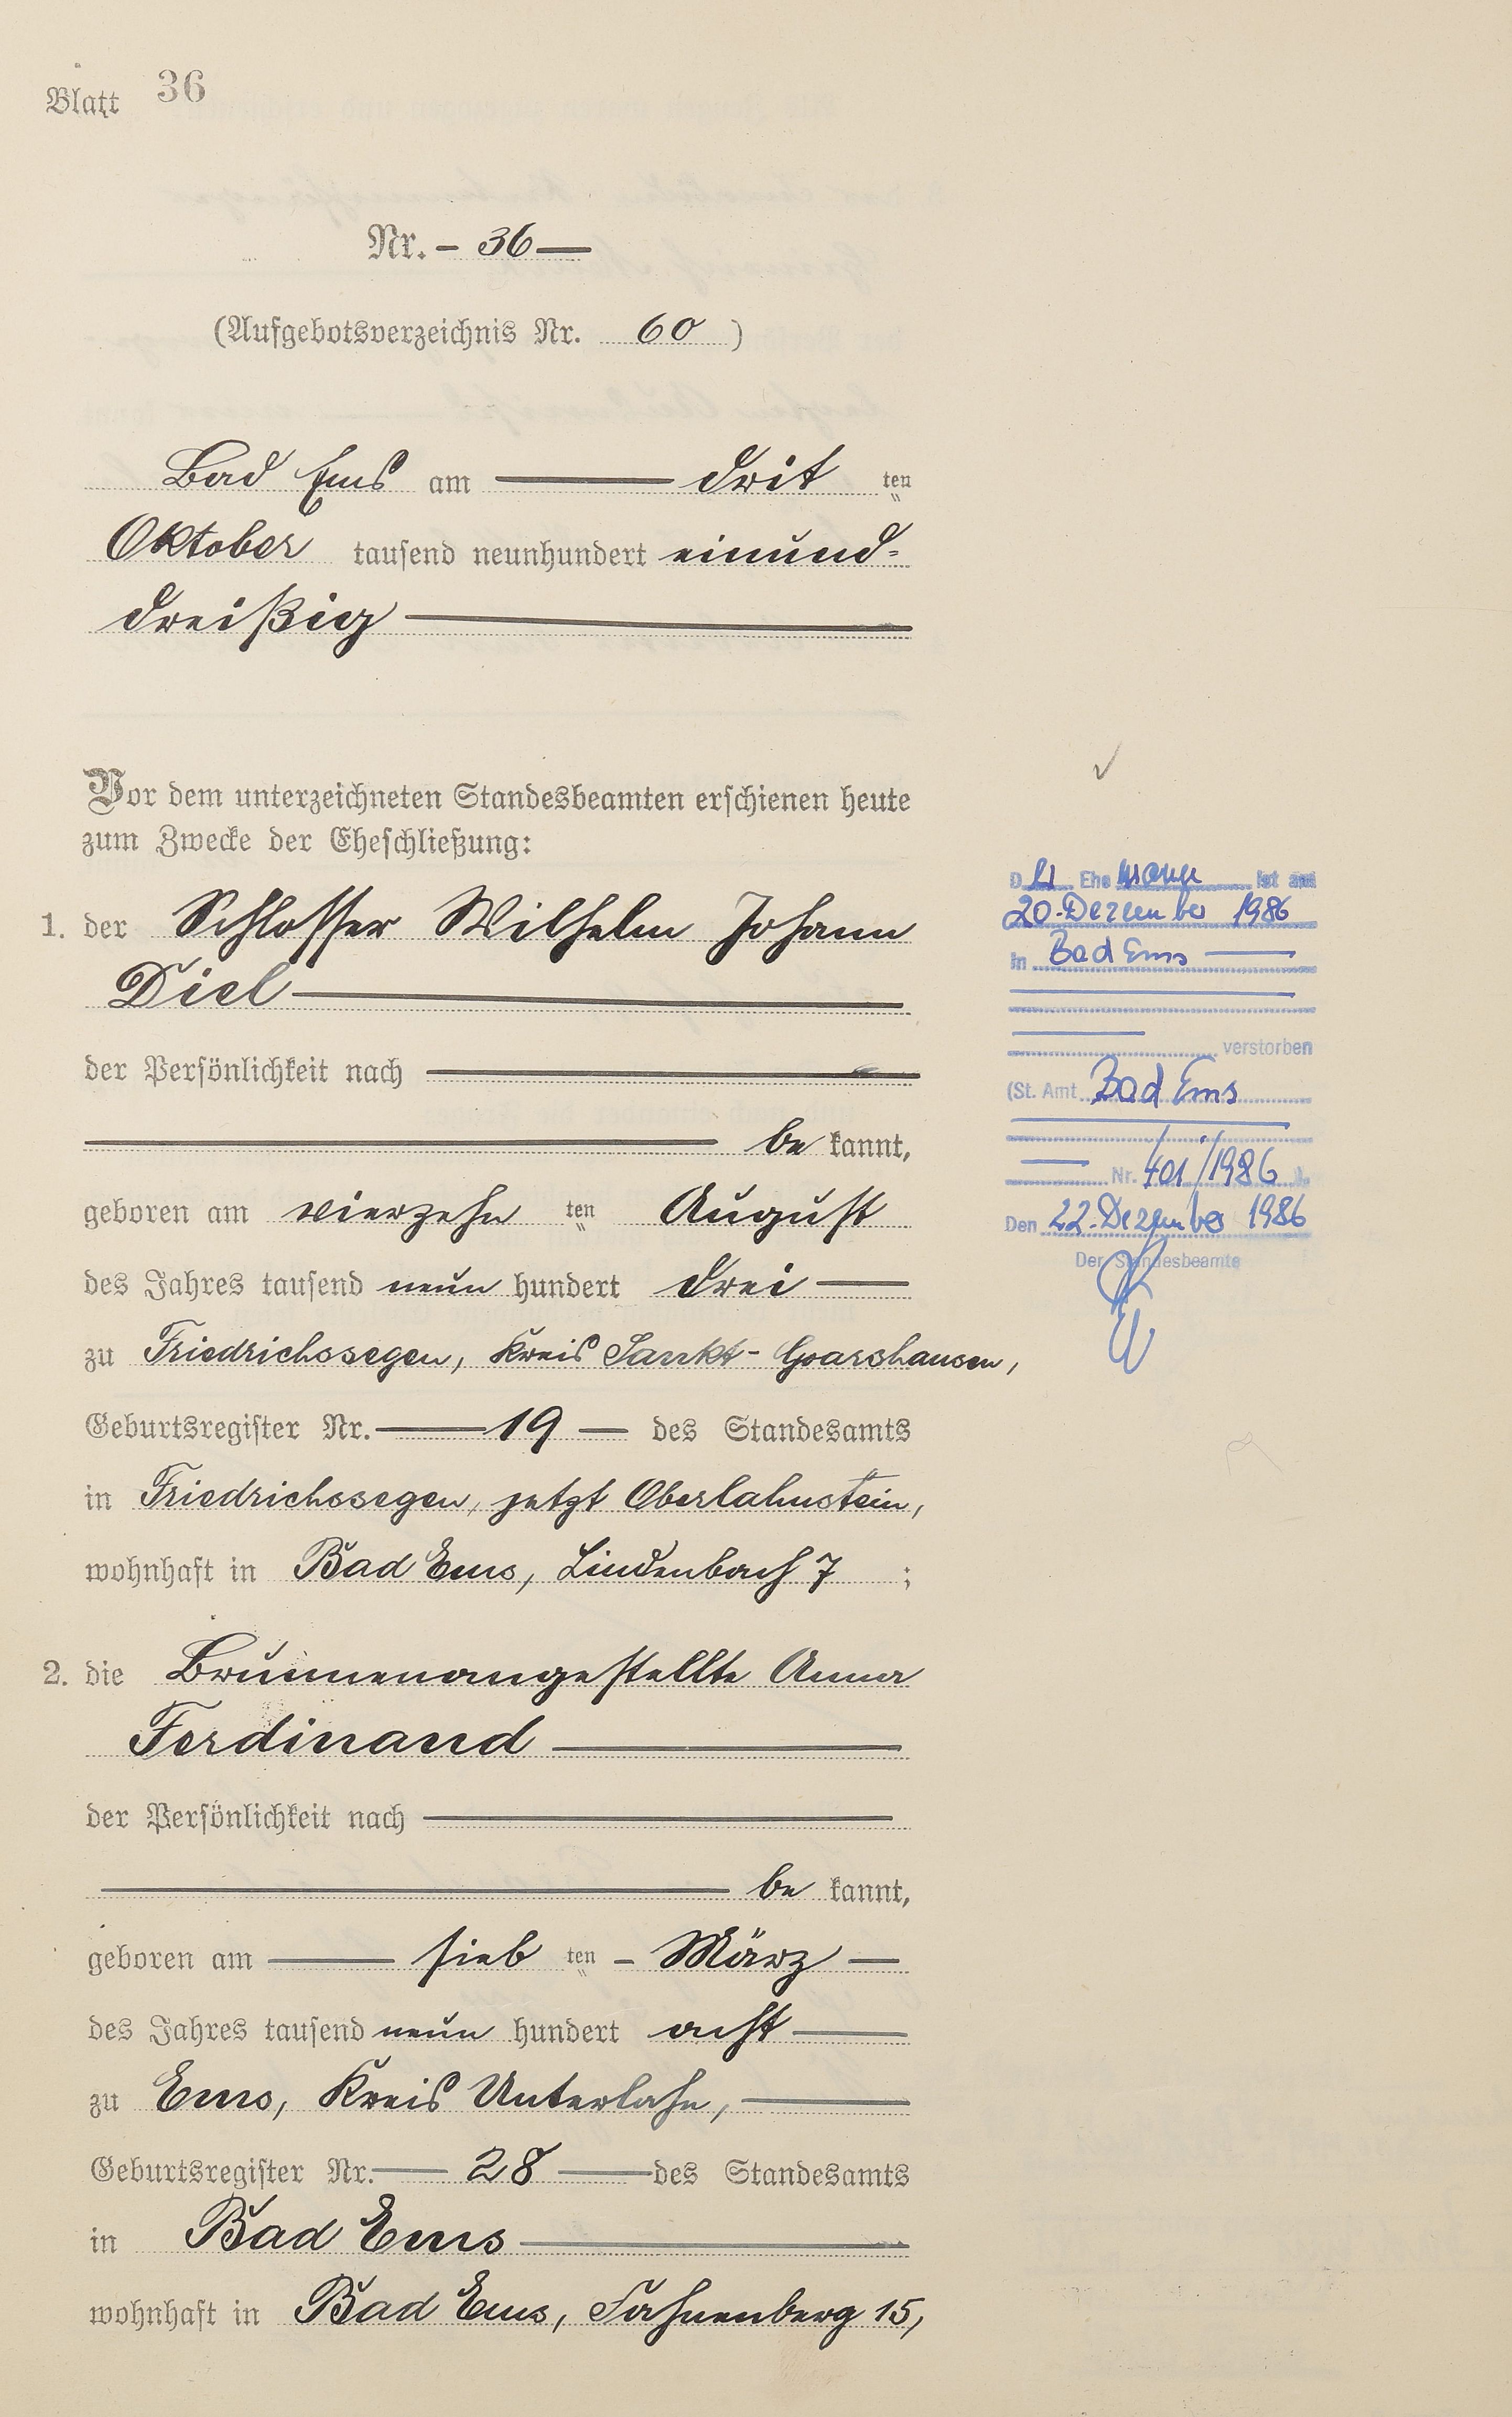 Blatt 36
Nr. - 36 —
(Aufgebotsverzeichnis Nr. 60 )
Bad Ems am — drit ten
Oktober tausend neunhundert einund-
dreißig —
Vor dem unterzeichneten Standesbeamten erschienen heute
zum Zwecke der Eheschließung:
1. der Schlosser Wilhelm Johann
Diel —
der Persönlichkeit nach —
— be kannt,
geboren am vierzehn ten August
des Jahres tausend neun hundert drei —
zu Friedrichssegen, Kreis Sankt-Goarshausen,
Geburtsregister Nr. — 19 — des Standesamts
in Friedrichssegen, jetzt Oberlahnstein,
wohnhaft in Bad Ems, Lindenbach 7 ;
2. die Brunnenangestellte Anna
Ferdinand —
der Persönlichkeit nach —
— be kannt,
geboren am — sieb ten - März —
des Jahres tausend neun hundert acht —
zu Ems, Kreis Unterlahn, —
Geburtsregister Nr. — 28 — des Standesamts
in Bad Ems —
wohnhaft in Bad Ems, Fahnenberg 15,
Der Ehemann ist am
20. Dezember 1986
in Bad Ems —
verstorben
(St. Amt Bad Ems
— Nr. 401/1986 ).
Den 22. Dezember 1986
Der Standesbeamte